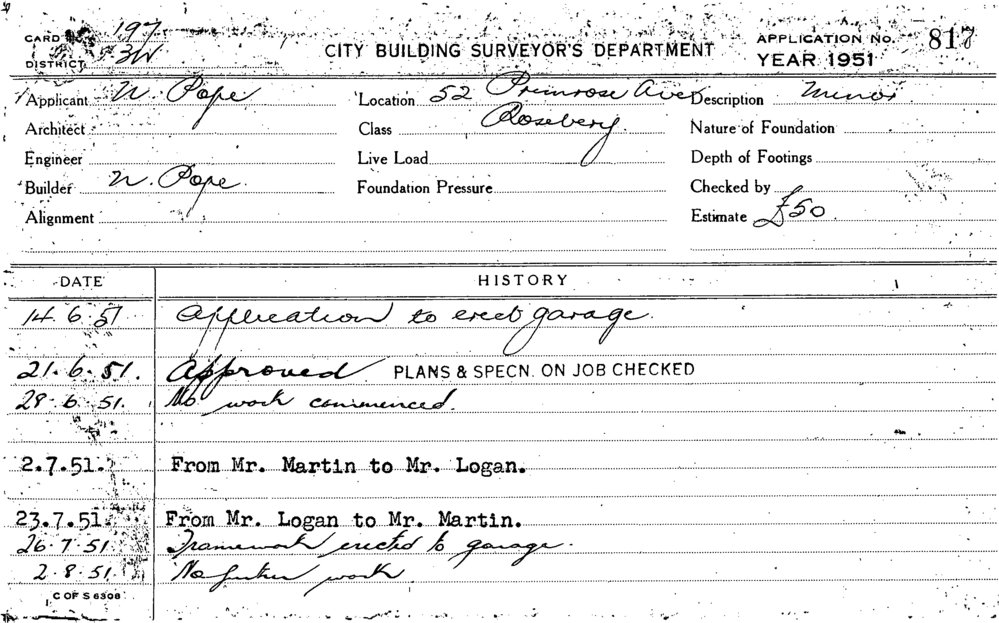 CARD No. 197
DISTRICT 3W
CITY BUILDING SURVEYOR'S DEPARTMENT
APPLICATION No. 817
YEAR 1951
Applicant N. Pope Location 52 Primrose Ave Description Minor
Architect Class Rosebery. Nature of Foundation
Engineer Live Load Depth of Footings
Builder N. Pope. Foundation Pressure Checked by
Alignment Estimate £50
DATE HISTORY
14.6.51 Application to erect garage.
21.6.51. Approved PLANS & SPECN. ON JOB CHECKED
28.6.51. No work commenced.
2.7.51. From Mr. Martin to Mr. Logan.
23.7.51 From Mr. Logan to Mr. Martin.
26.7.51. Framework erected to garage.
2.8.51. No further work
C OF S 6308